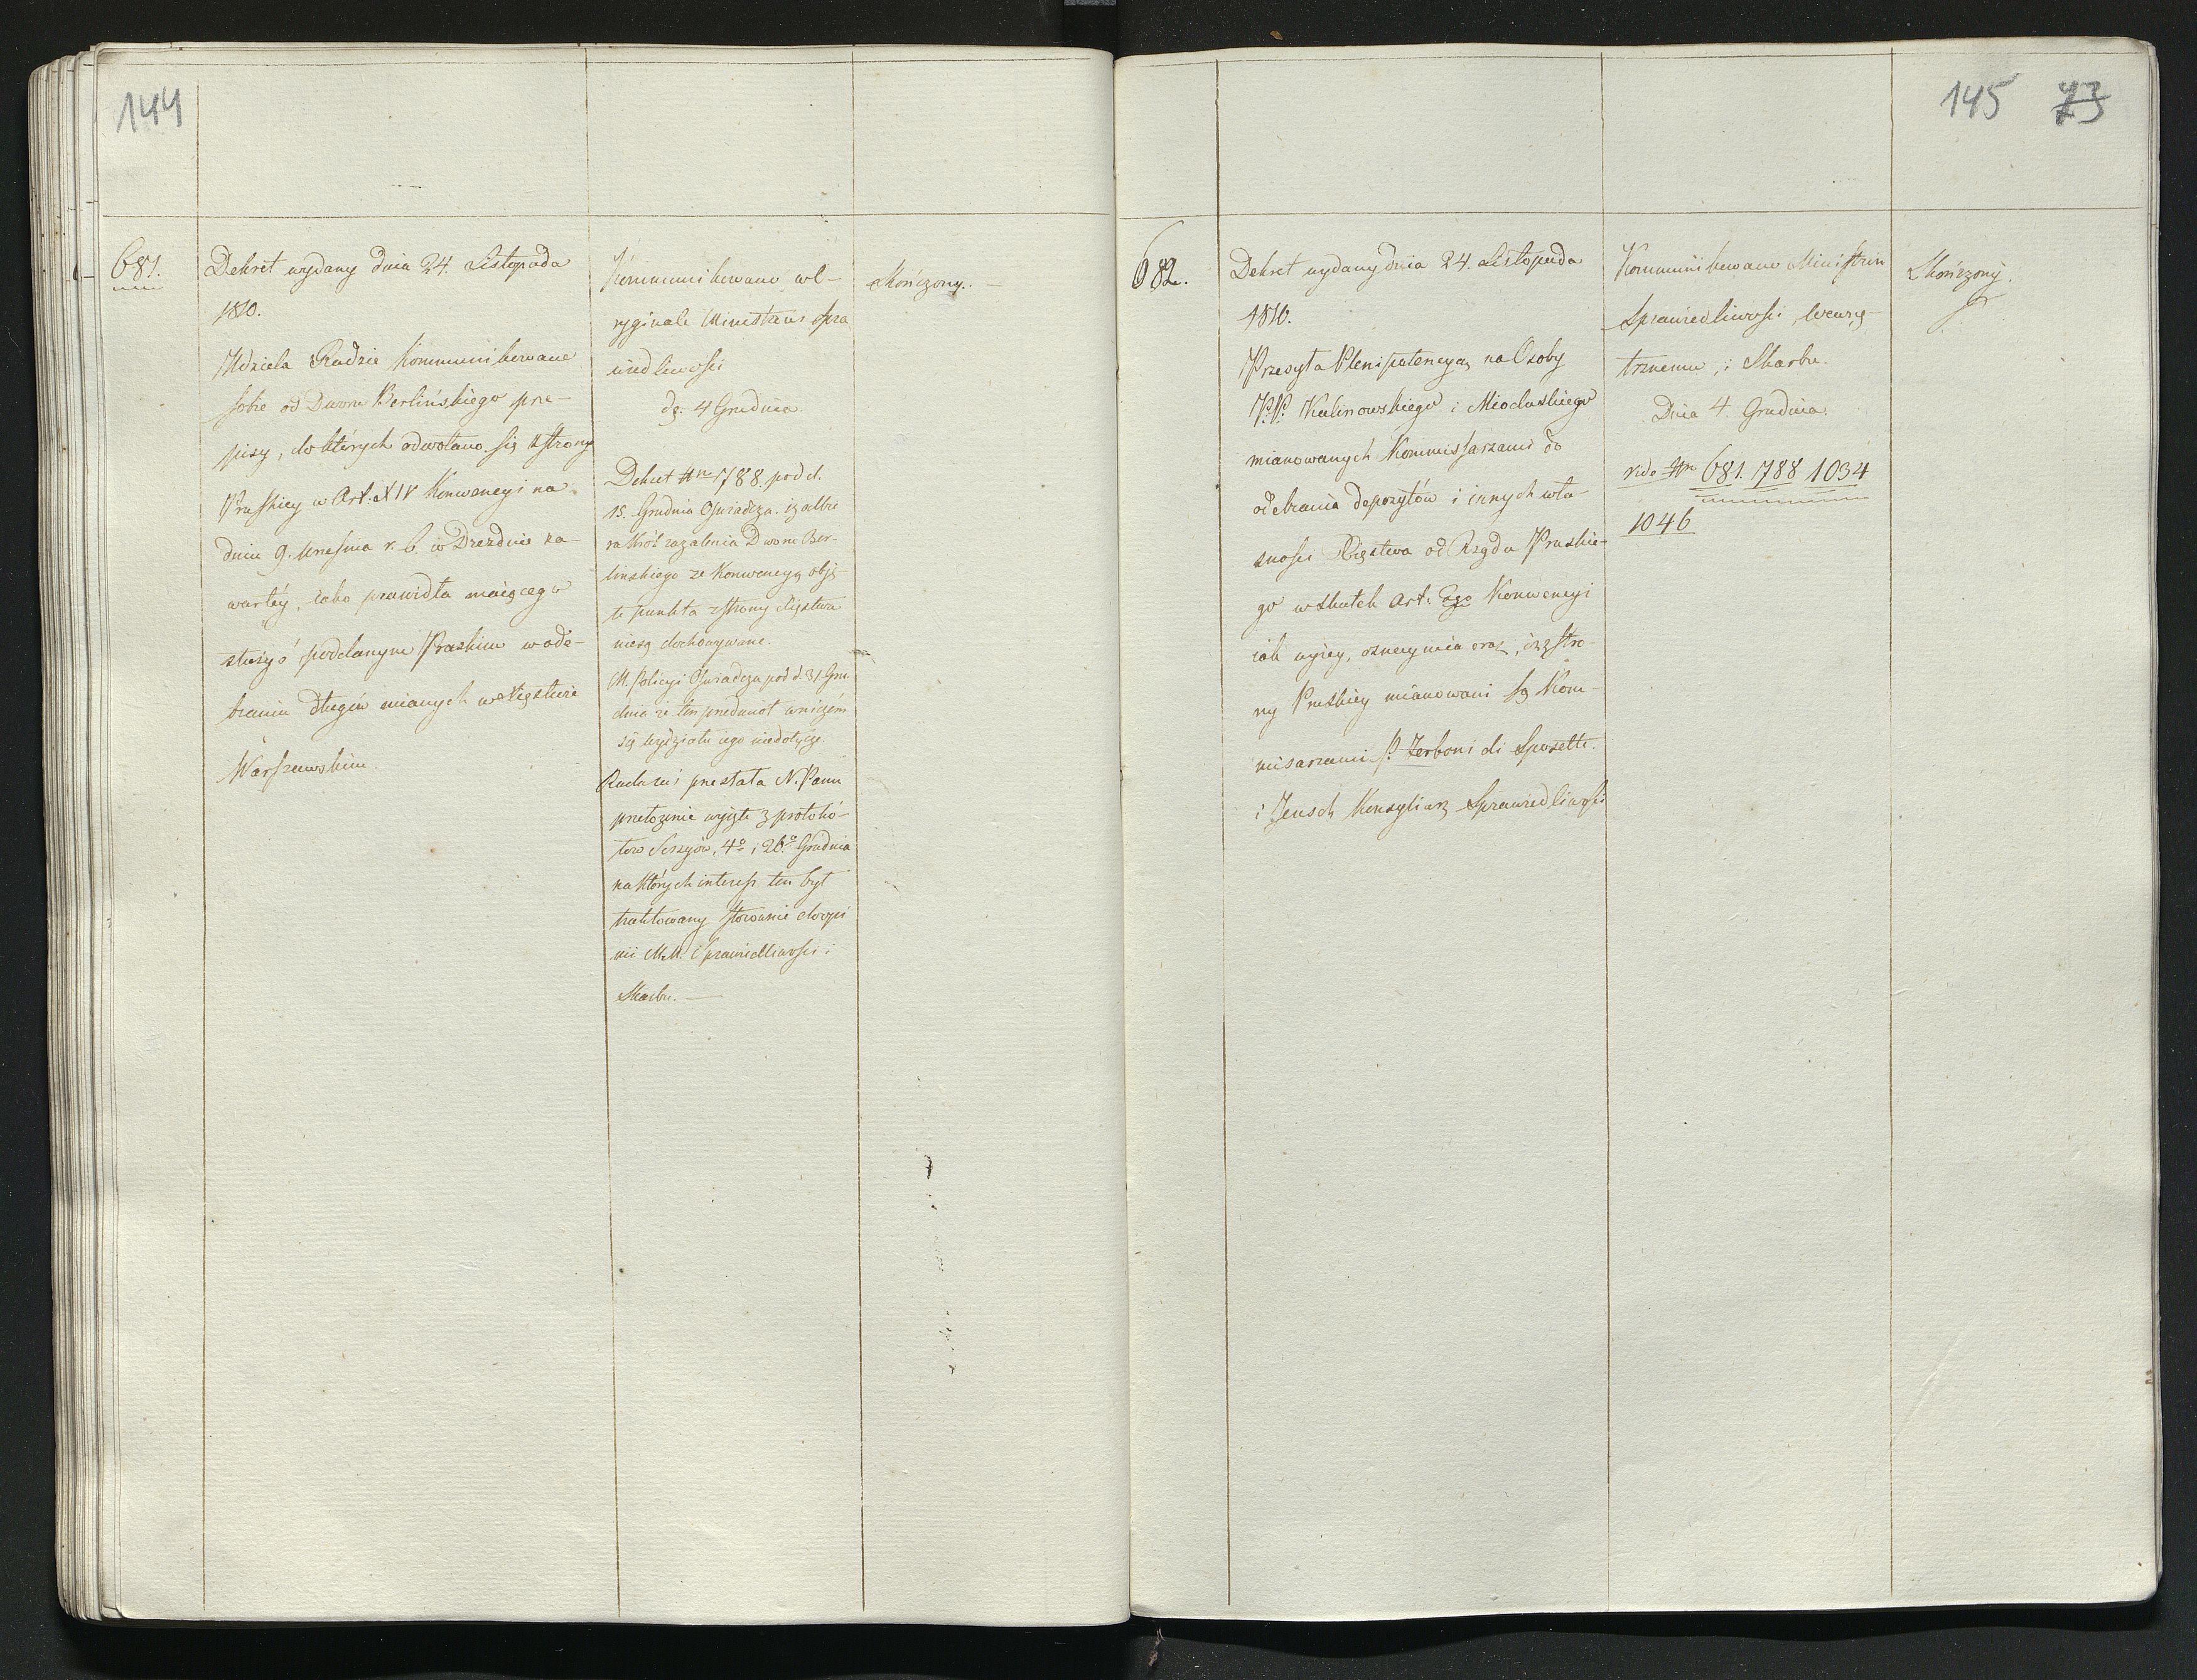 144
681.
Dekret wydany dnia 24. Listopada
1810.
Udziela Radzie kommunikowane
sobie od Dworu Berlińskiego prze-
pisy, do których odwołano się z strony
Pruskiey w Art. XIV Konwencyi na
dniu 9. Września r. b. w Dreznie za-
wartéy, iako prawidła maiącego
służyć poddanym Pruskim w ode-
braniu długów mianych w Xięstwie
Warszawskim
Kommunikowano w O-
ryginale Ministrowi Spra
wiedliwości
d. 4 Grudnia
Dekret Nro 788. pod d.
15. Grudnia Oświadcza. iż odbie
ra Król zażalenia Dworu Ber-
linskiego że Konwencyą obję-
te punkta z strony Xięstwa
niesą dochowywane.
M. Policyi Oświadcza pod d. 31 Gru
dnia że ten przedmiot w niczém
się wydziału iego niedotycze.
Rada Mi przesłała N. Panu
przełożenie wyięte z protokó-
łow Sessyów, 4º i 26º Grudnia
na których interess ten był
traktowany stosownie do opi
nii M.M. Sprawiedliwości i
Skarbu. —
Skończony. —
145 73
682.
Dekret wydany dnia 24. Listopada
1810.
Przesyła Plenipotencyą na Osoby
P.P. Kalinowskiego i Mioduskiego
mianowanych Kommissarzami do
odebrania depozytów i innych wła-
sności Xięstwa od Rządu Pruskie-
go w skutek Art. Konwencyi
iak wyżey, oznaymia oraz, iż z stro-
ny Pruskiey mianowani są Kom-
misarzami P. Zerboni di Sposetti
i Jensch Konsyliarz Sprawiedliwości
Kommunikowano Ministrom
Sprawiedliwości, Wewnę-
trznemu, i Skarbu.
Dnia 4. Grudnia.
vide Nro 681. 788 1034
1046
Skończony.